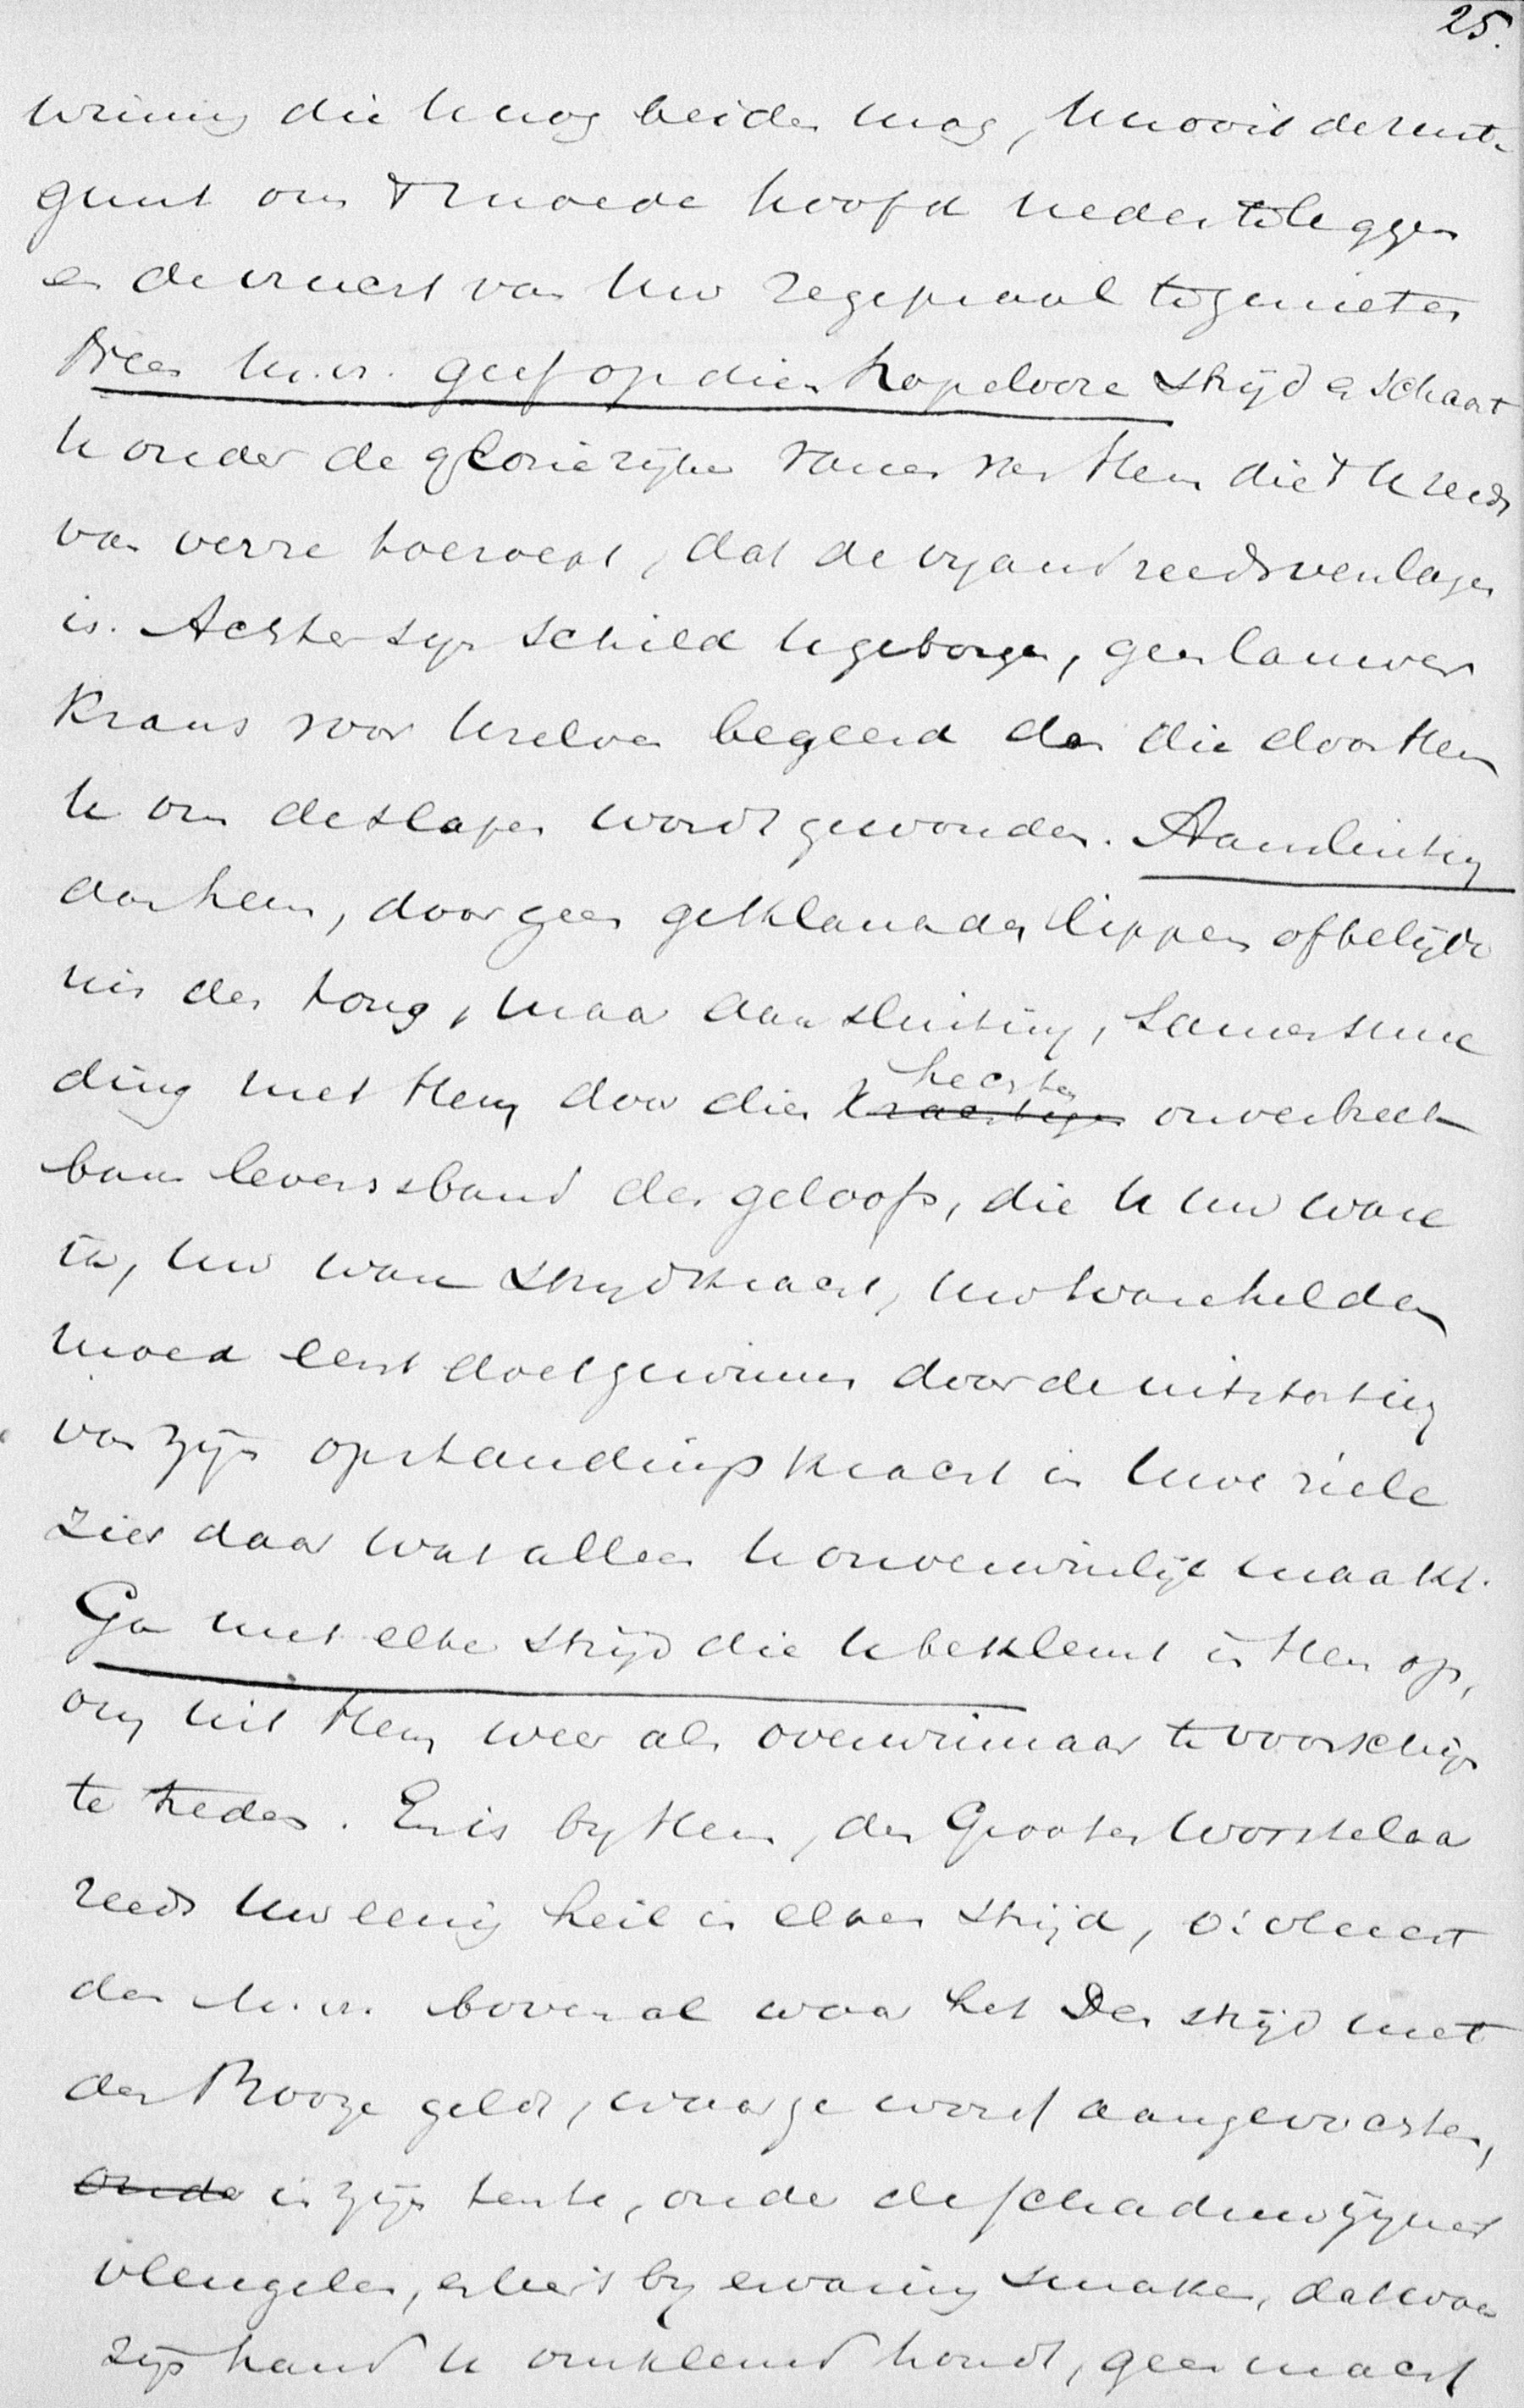 25.
winning die U nog beiden mag, U nooit de rust
gunt om 't moede hoofd neder te leggen
en de vrucht van Uw zegepraal te genieten
Neen m.vr. geef op dien hopeloozen strijd en schaart
U onder de glorierijke vanen van Hem die 't U reeds
van verre toeroept, dat de vyand reeds verslagen
is. Achter Zyn schild U geborgen, geen lauwer
krans voor Uzelven begeerd dan die door Hem
U om de slapen wordt gewonden. Aansluiting
aan hem, door geen geklank der lippen of belijde
nis der tong, maar aansluiting, samensme
ding met Hem door dien krachtigen hechten onverbreek
baren levensband des geloofs, die U uw ware
in, uw ware strydkracht, uw ware helden
moed eerst doet gewinnen door de uitstorting
van zijn opstandingskracht in Uwe ziele
zie daar wat alleen U onverwinlijk maakt.
Ga met elken strijd die U beklemt in Hem op,
om uit Hem weer als overwinnaar te voorschijn
te treden. En is by Hem, den Grooten Worstelaar
reeds Uw eenig heil in elken strijd, o! vlucht
dan m.vr. bovenal waar het Den strijd met
den Booze geldt, waar ge wordt aangevochten,
onder in zijn tente, onder de schaduw zijner
vleugelen, en by ervaring smaken, dat waar
zijn hand U omklemd houdt, geen macht